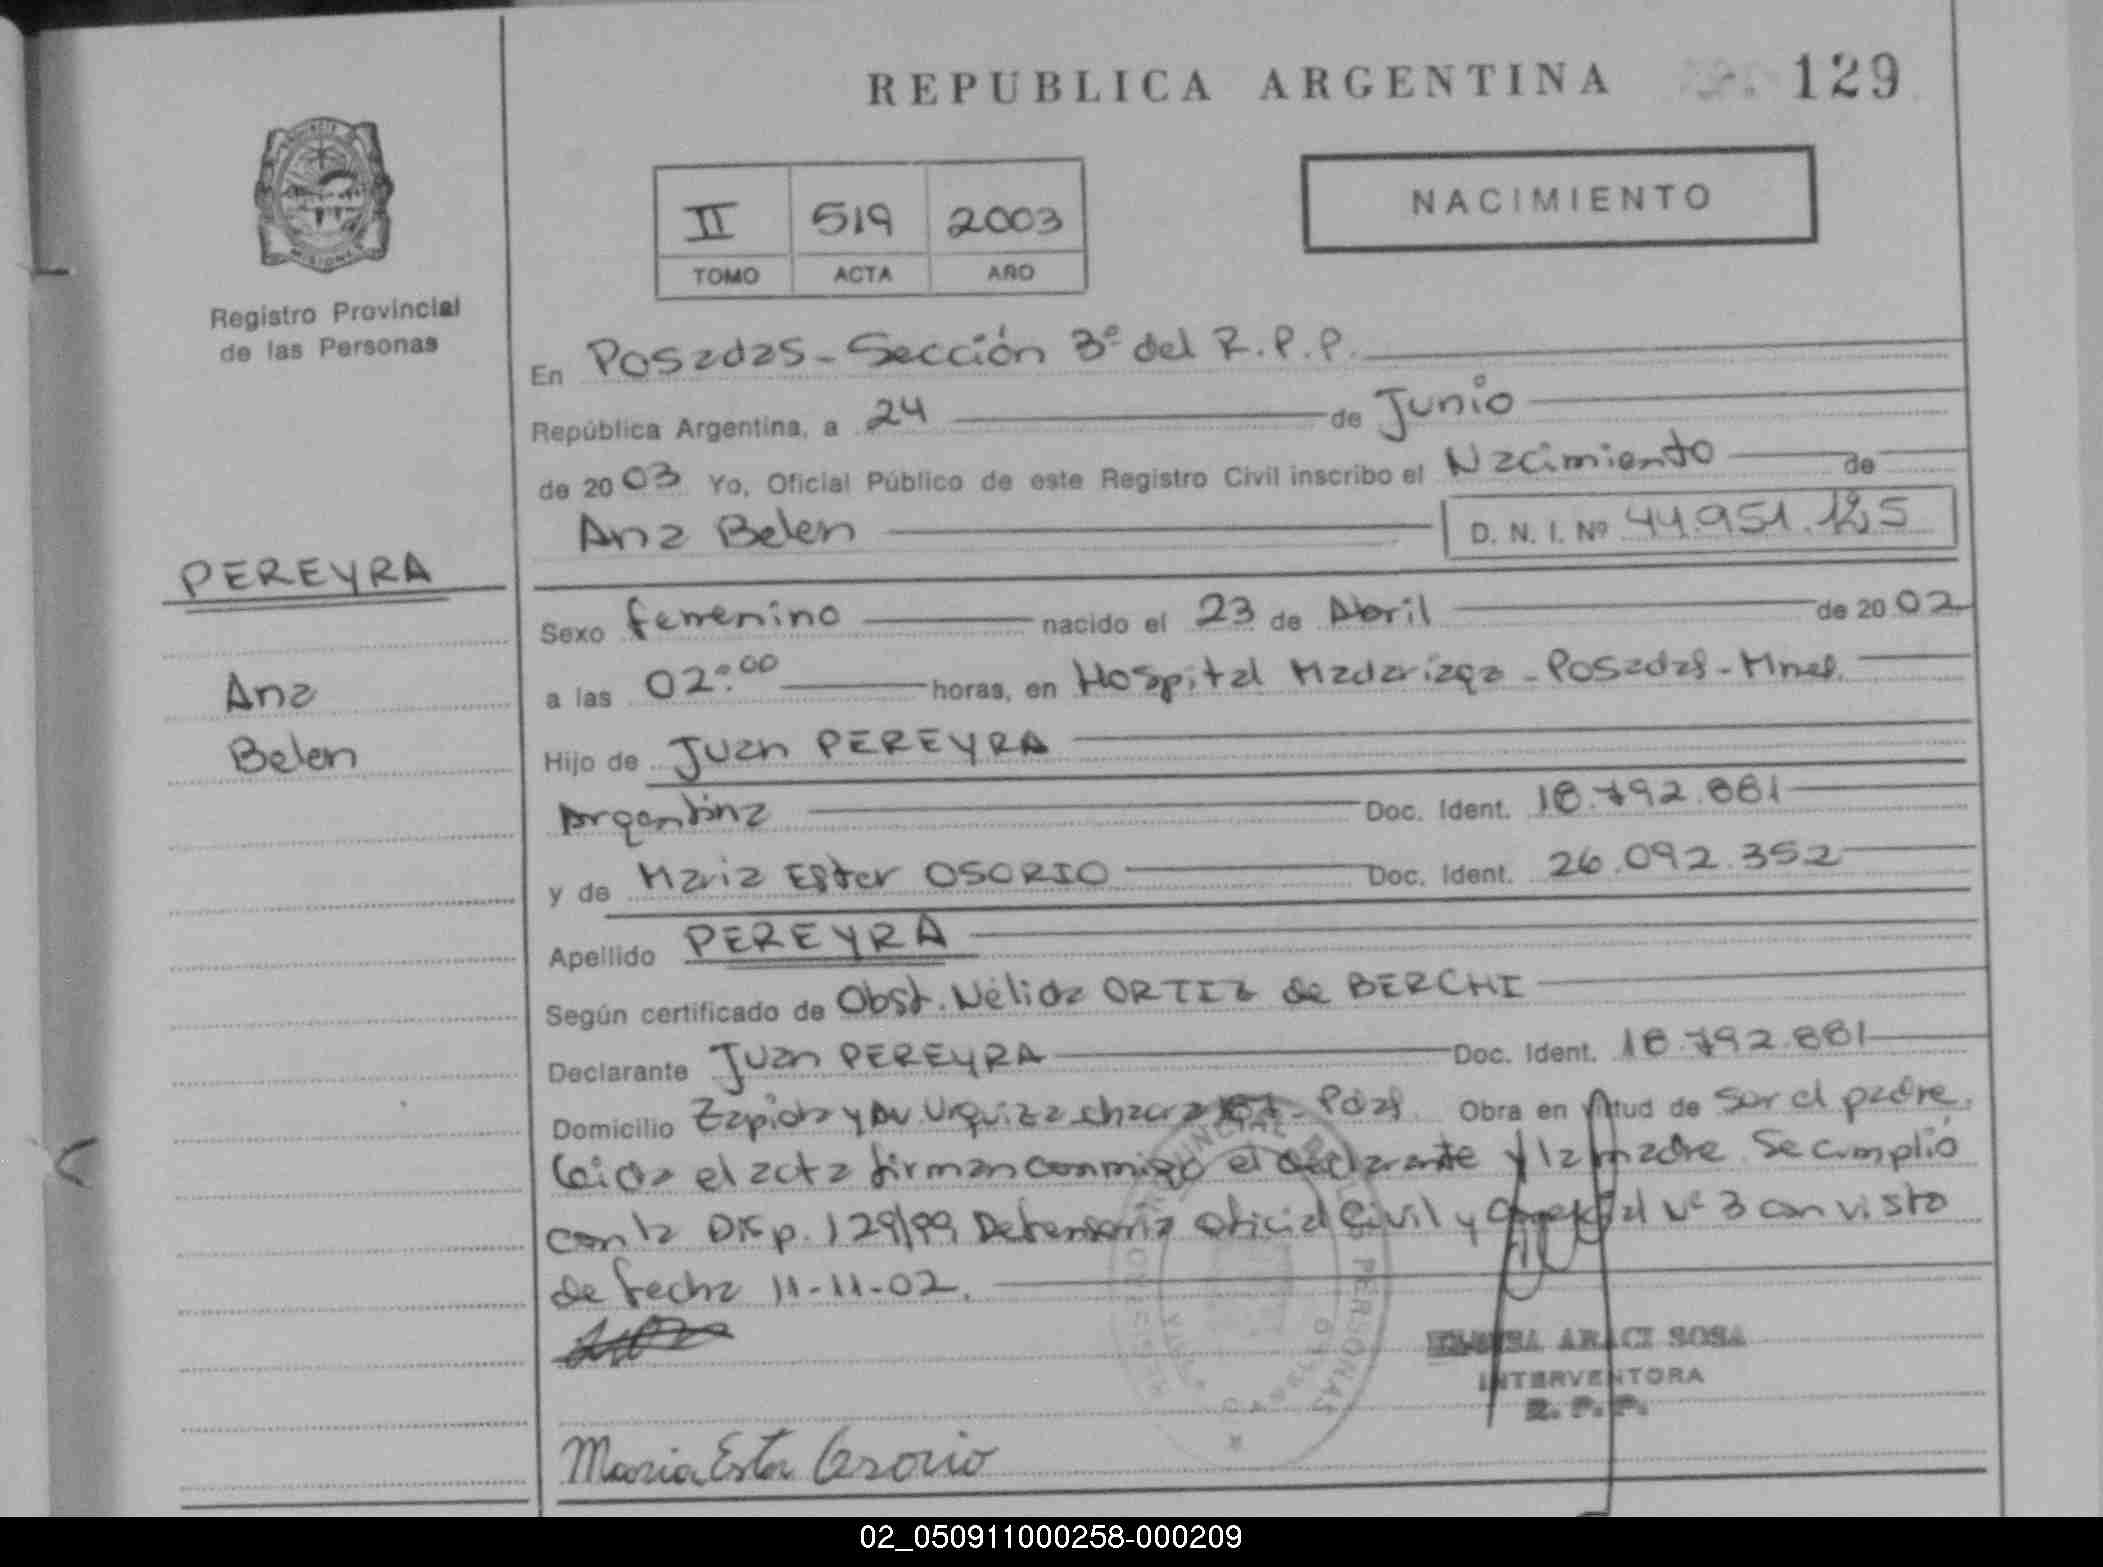 REPUBLICA ARGENTINA 129
NACIMIENTO
II 519 2003
TOMO ACTA AÑO
Registro Provincial
de las Personas
PEREYRA
Ana
Belen
En Posadas - Sección 3ª del R.P.P.
República Argentina, a 24 de Junio
de 2003 Yo, Oficial Público de este Registro Civil inscribo el Nacimiento de
Ana Belen D. N. I. Nº 44.951.125
Sexo femenino nacido el 23 de Abril de 2002
a las 02:00 horas, en Hospital Madariaga - Posadas - Mnes.
Hijo de Juan PEREYRA
Argentina Doc. Ident. 18.792.881
y de Maria Ester OSORIO Doc. Ident. 26.092.352
Apellido PEREYRA
Según certificado de Obst. Nélida ORTIZ de BERCHI
Declarante Juan PEREYRA Doc. Ident. 18.792.881
Domicilio Zapiola y Av Urquiza chacra - Pdas. Obra en virtud de ser el padre.
Leida el acta firman conmigo el declarante y la madre. Se cumplió
con la Disp. 129/99, Defensoria Oficial Civil y Comercial Nº 3 con visto
de fecha 11-11-02.
ARACI SOSA
INTERVENTORA
R. P. P.
Maria Ester Osorio
02_050911000258-000209